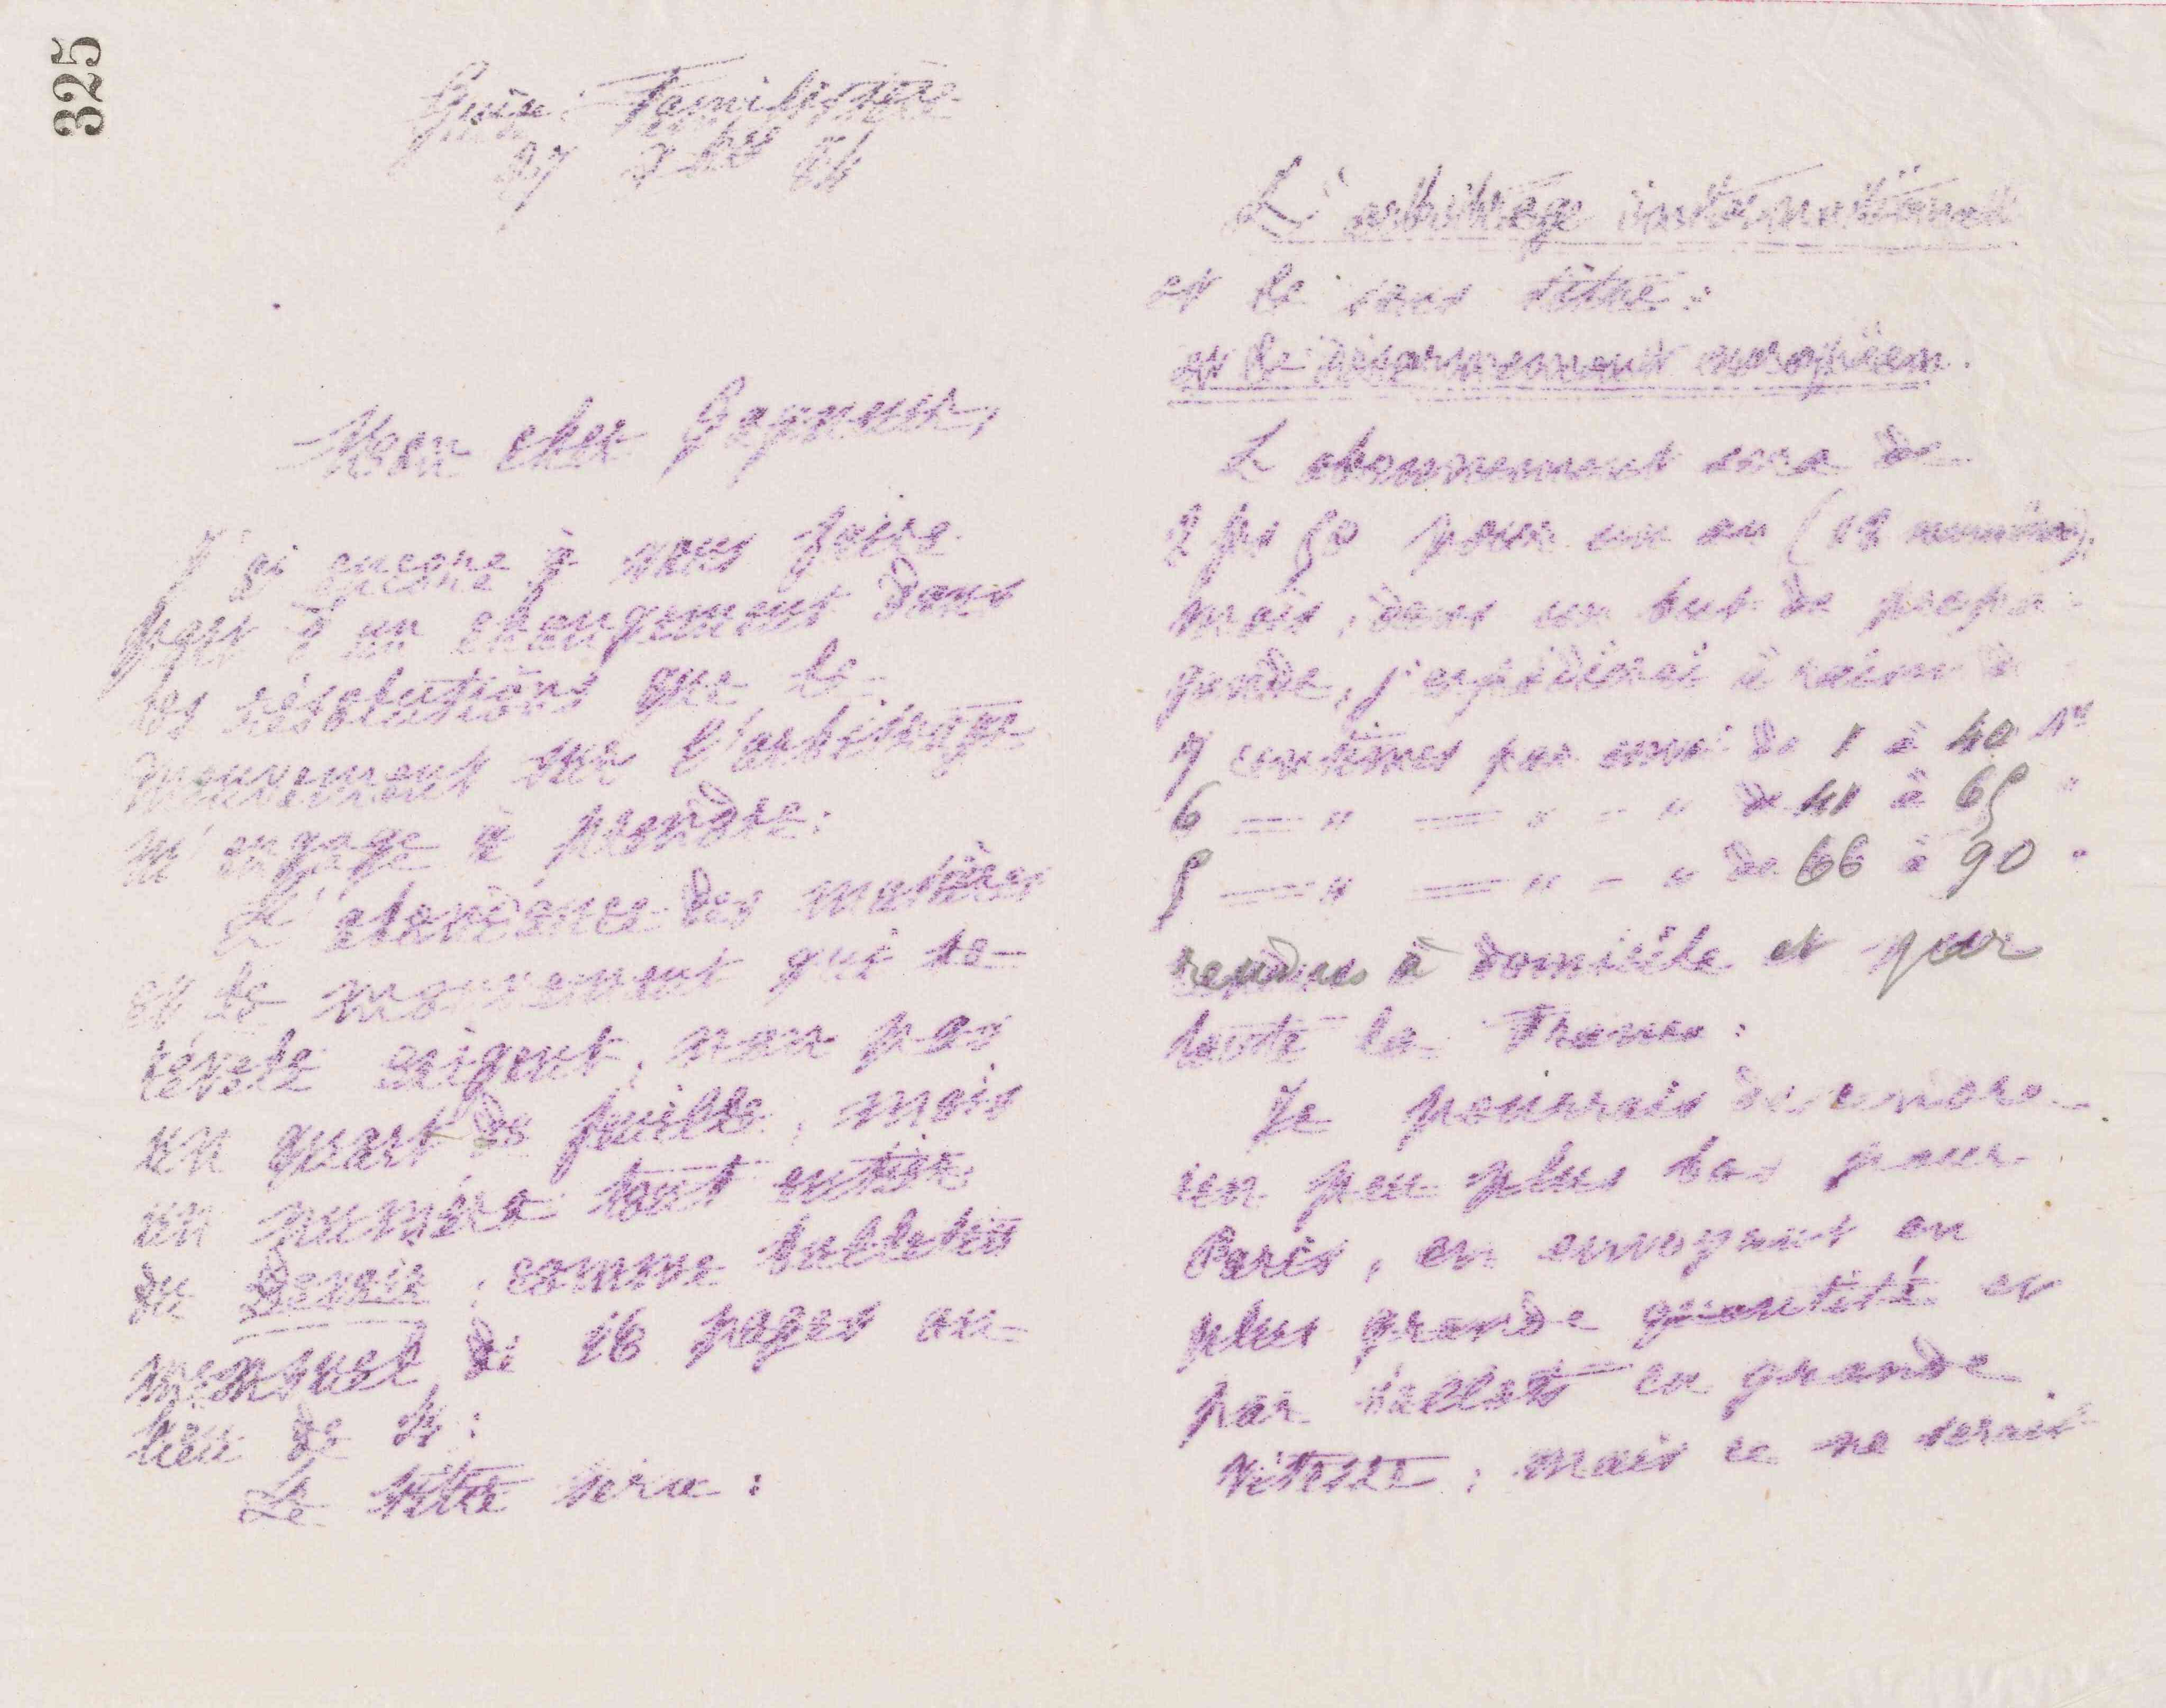 325
Guise. Familistère
27 7bre 84
Mon cher Gagneur,
J'ai encore à vous faire
part d'un changement dans
les résolutions que le
mouvement sur l'arbitrage
m'engage à prendre.
L'abondance des matières
et le mouvement qui se
révèle exigent, non pas
un quart de feuille, mais
un numéro tout entier
du Devoir, comme bulletin
mensuel de 16 pages au
lieu de 4.
Le titre sera :
L'arbitrage international
et le sous titre :
et le désarmement européen.
L'abonnement sera de
2 frs 50 pour un an (12 numéros),
mais, dans un but de propa-
gande, j'expédierai à raison de
7 centimes par envoi de 1 à 40 Nos
6 — " — " - " de 41 à 65 "
5 — " — " - " de 66 à 90 "
rendus à domicile et par
toute la France.
Je pourrais descendre
un peu plus bas pour
Paris, en envoyant en
plus grande quantité et
par ballots en grande
vitesse, mais ce ne serait